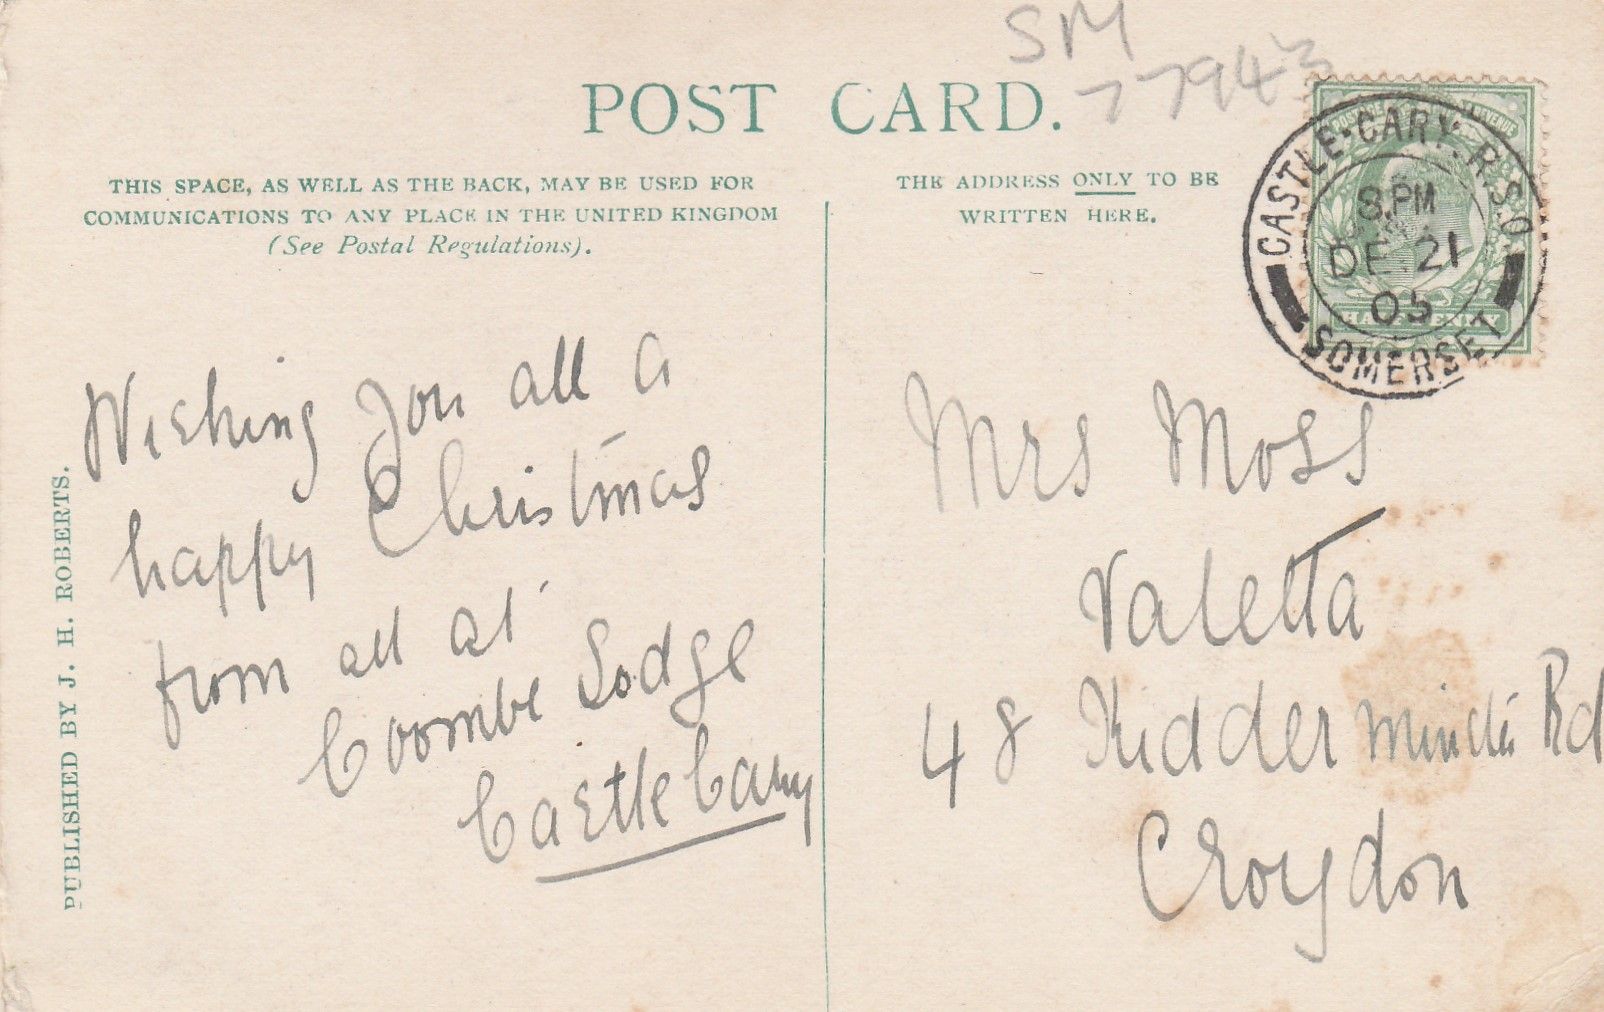 SM
77943
POST CARD.
THIS SPACE, AS WELL AS THE BACK, MAY BE USED FOR
COMMUNICATIONS TO ANY PLACE IN THE UNITED KINGDOM
(See Postal Regulations).
THE ADDRESS ONLY TO BE
WRITTEN HERE.
CASTLE-CARY.R.S.O
8.PM
DE 21
05
SOMERSET
HALFPENNY
Wishing you all a
happy Christmas
from all at
Coombe Lodge
Castle Cary
Mrs Moss
Valetta
48 Kidderminster Rd
Croydon
PUBLISHED BY J. H. ROBERTS.